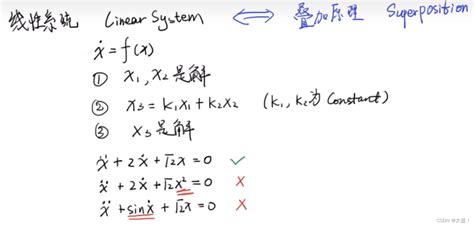 线性系统 Linear System ⟺ 叠加原理 Superposition
ẋ = f(x)
① x₁, x₂ 是解
② x₃ = k₁x₁ + k₂x₂ (k₁, k₂ 为 Constant)
③ x₃ 是解
ẍ + 2ẋ + √2x = 0 ✓
ẍ + 2ẋ + √2x² = 0 ×
ẍ + sinẋ + √2x = 0 ×